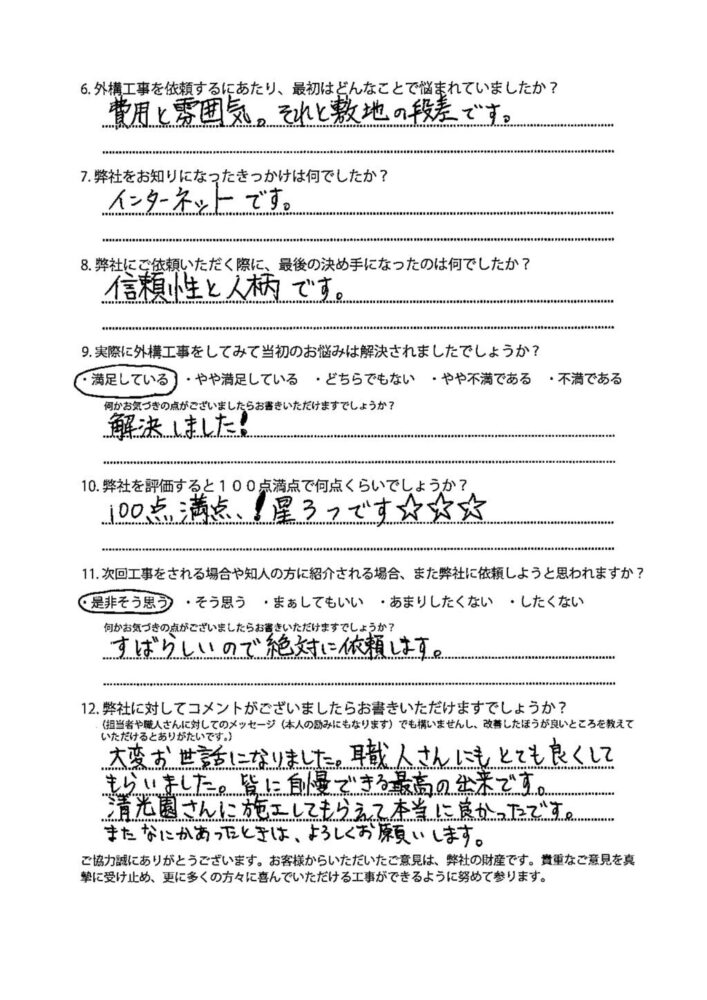 6. 外構工事を依頼するにあたり、最初はどんなことで悩まれていましたか？
費用と雰囲気。それと敷地の段差です。
7. 弊社をお知りになったきっかけは何でしたか？
インターネットです。
8. 弊社にご依頼いただく際に、最後の決め手になったのは何でしたか？
信頼性と人柄です。
9. 実際に外構工事をしてみて当初のお悩みは解決されましたでしょうか？
・満足している ・やや満足している ・どちらでもない ・やや不満である ・不満である
何かお気づきの点がございましたらお書きいただけますでしょうか？
解決しました！
10. 弊社を評価すると１００点満点で何点くらいでしょうか？
100点満点、！星3つです☆☆☆
11. 次回工事をされる場合や知人の方に紹介される場合、また弊社に依頼しようと思われますか？
・是非そう思う ・そう思う ・まぁしてもいい ・あまりしたくない ・したくない
何かお気づきの点がございましたらお書きいただけますでしょうか？
すばらしいので絶対に依頼します。
12. 弊社に対してコメントがございましたらお書きいただけますでしょうか？
（担当者や職人さんに対してのメッセージ（本人の励みにもなります）でも構いませんし、改善したほうが良いところを教えて
いただけるとありがたいです。）
大変お世話になりました。職人さんにもとても良くして
もらいました。皆に自慢できる最高の出来です。
清光園さんに施工してもらえて本当に良かったです。
またなにかあったときは、よろしくお願いします。
ご協力誠にありがとうございます。お客様からいただいたご意見は、弊社の財産です。貴重なご意見を真
摯に受け止め、更に多くの方々に喜んでいただける工事ができるように努めて参ります。